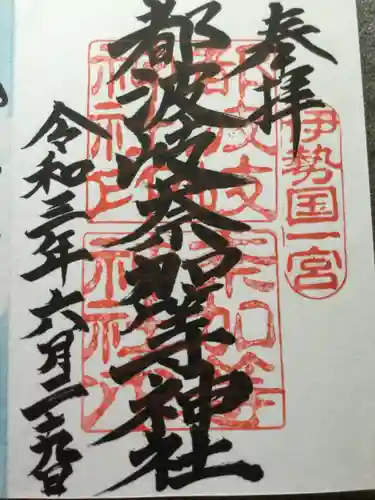 奉拝
伊勢国一宮
都波岐奈加等神社
令和三年六月二十九日